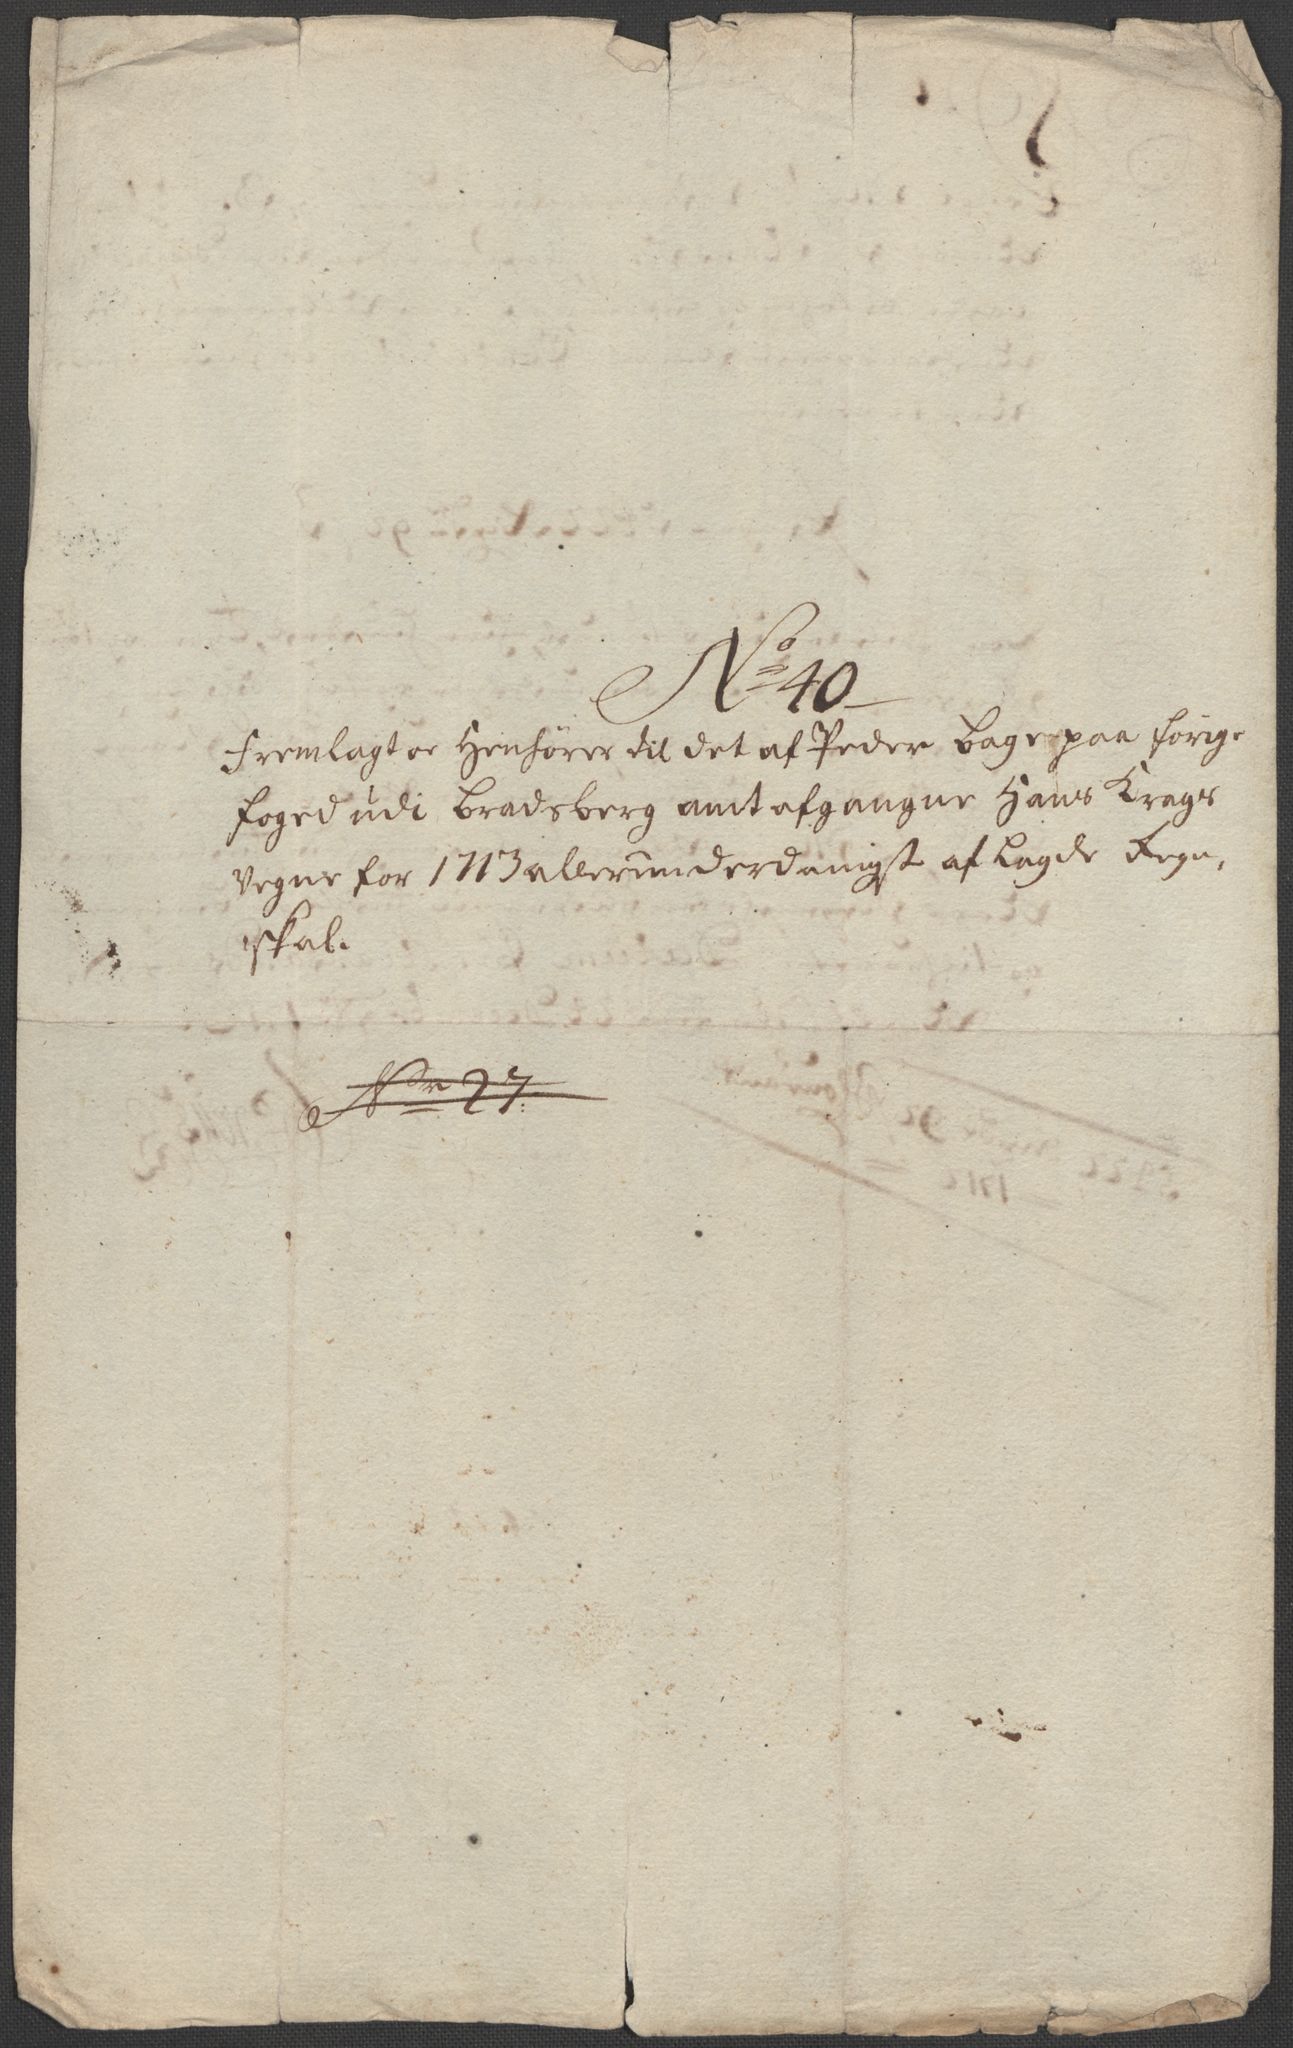 No 40
Fremlagt oc Henhører til det af Peder Bage paa forige
foged udi Bradsberg amt afgangne Hans Krags
Vegne for 1713 allerunderdanigst aflagde Regn,
skab.
Nr 27.